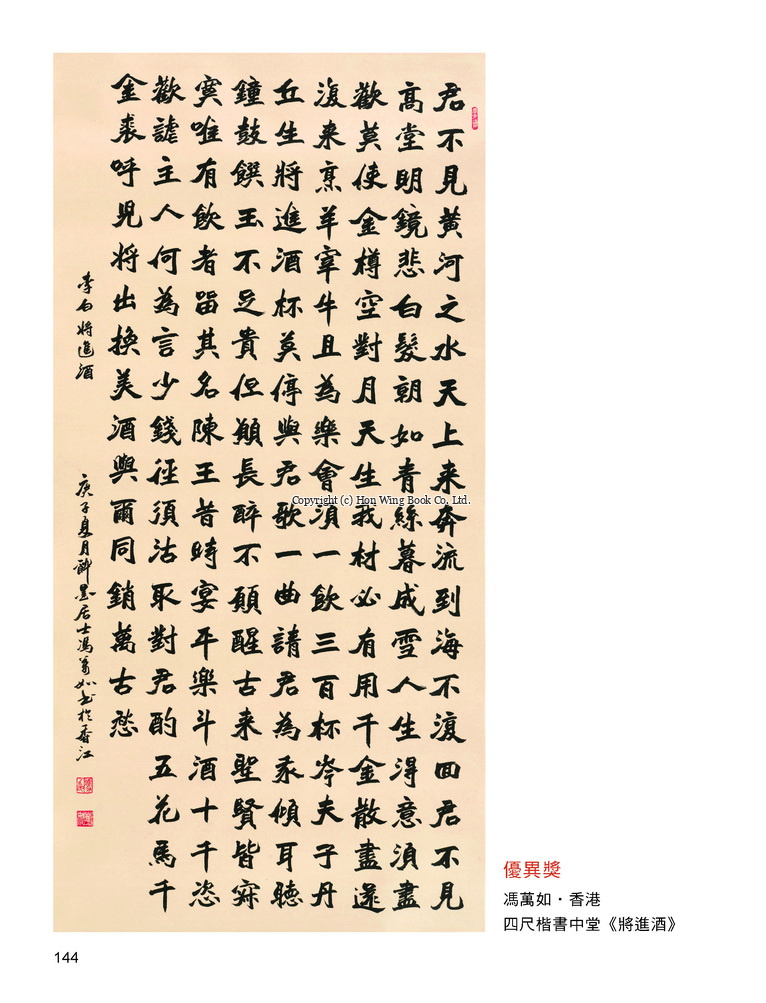 君不見黃河之水天上来奔流到海不復回君不見
高堂明鏡悲白髮朝如青絲暮成雪人生得意須盡
歡莫使金樽空對月天生我材必有用千金散盡還
復来烹羊宰牛且為樂會須一飲三百杯岑夫子丹
丘生將進酒杯莫停與君歌一曲請君為我傾耳聽
鐘鼓饌玉不足貴但願長醉不願醒古来聖賢皆寂
寞唯有飲者留其名陳王昔時宴平樂斗酒十千恣
歡謔主人何為言少錢徑須沽取對君酌五花馬千
金裘呼兒將出換美酒與爾同銷萬古愁
李白將進酒
庚子夏月醉墨居士馮萬如书於香江
Copyright (c) Hon Wing Book Co. Ltd.
優異獎
馮萬如・香港
四尺楷書中堂《將進酒》
144